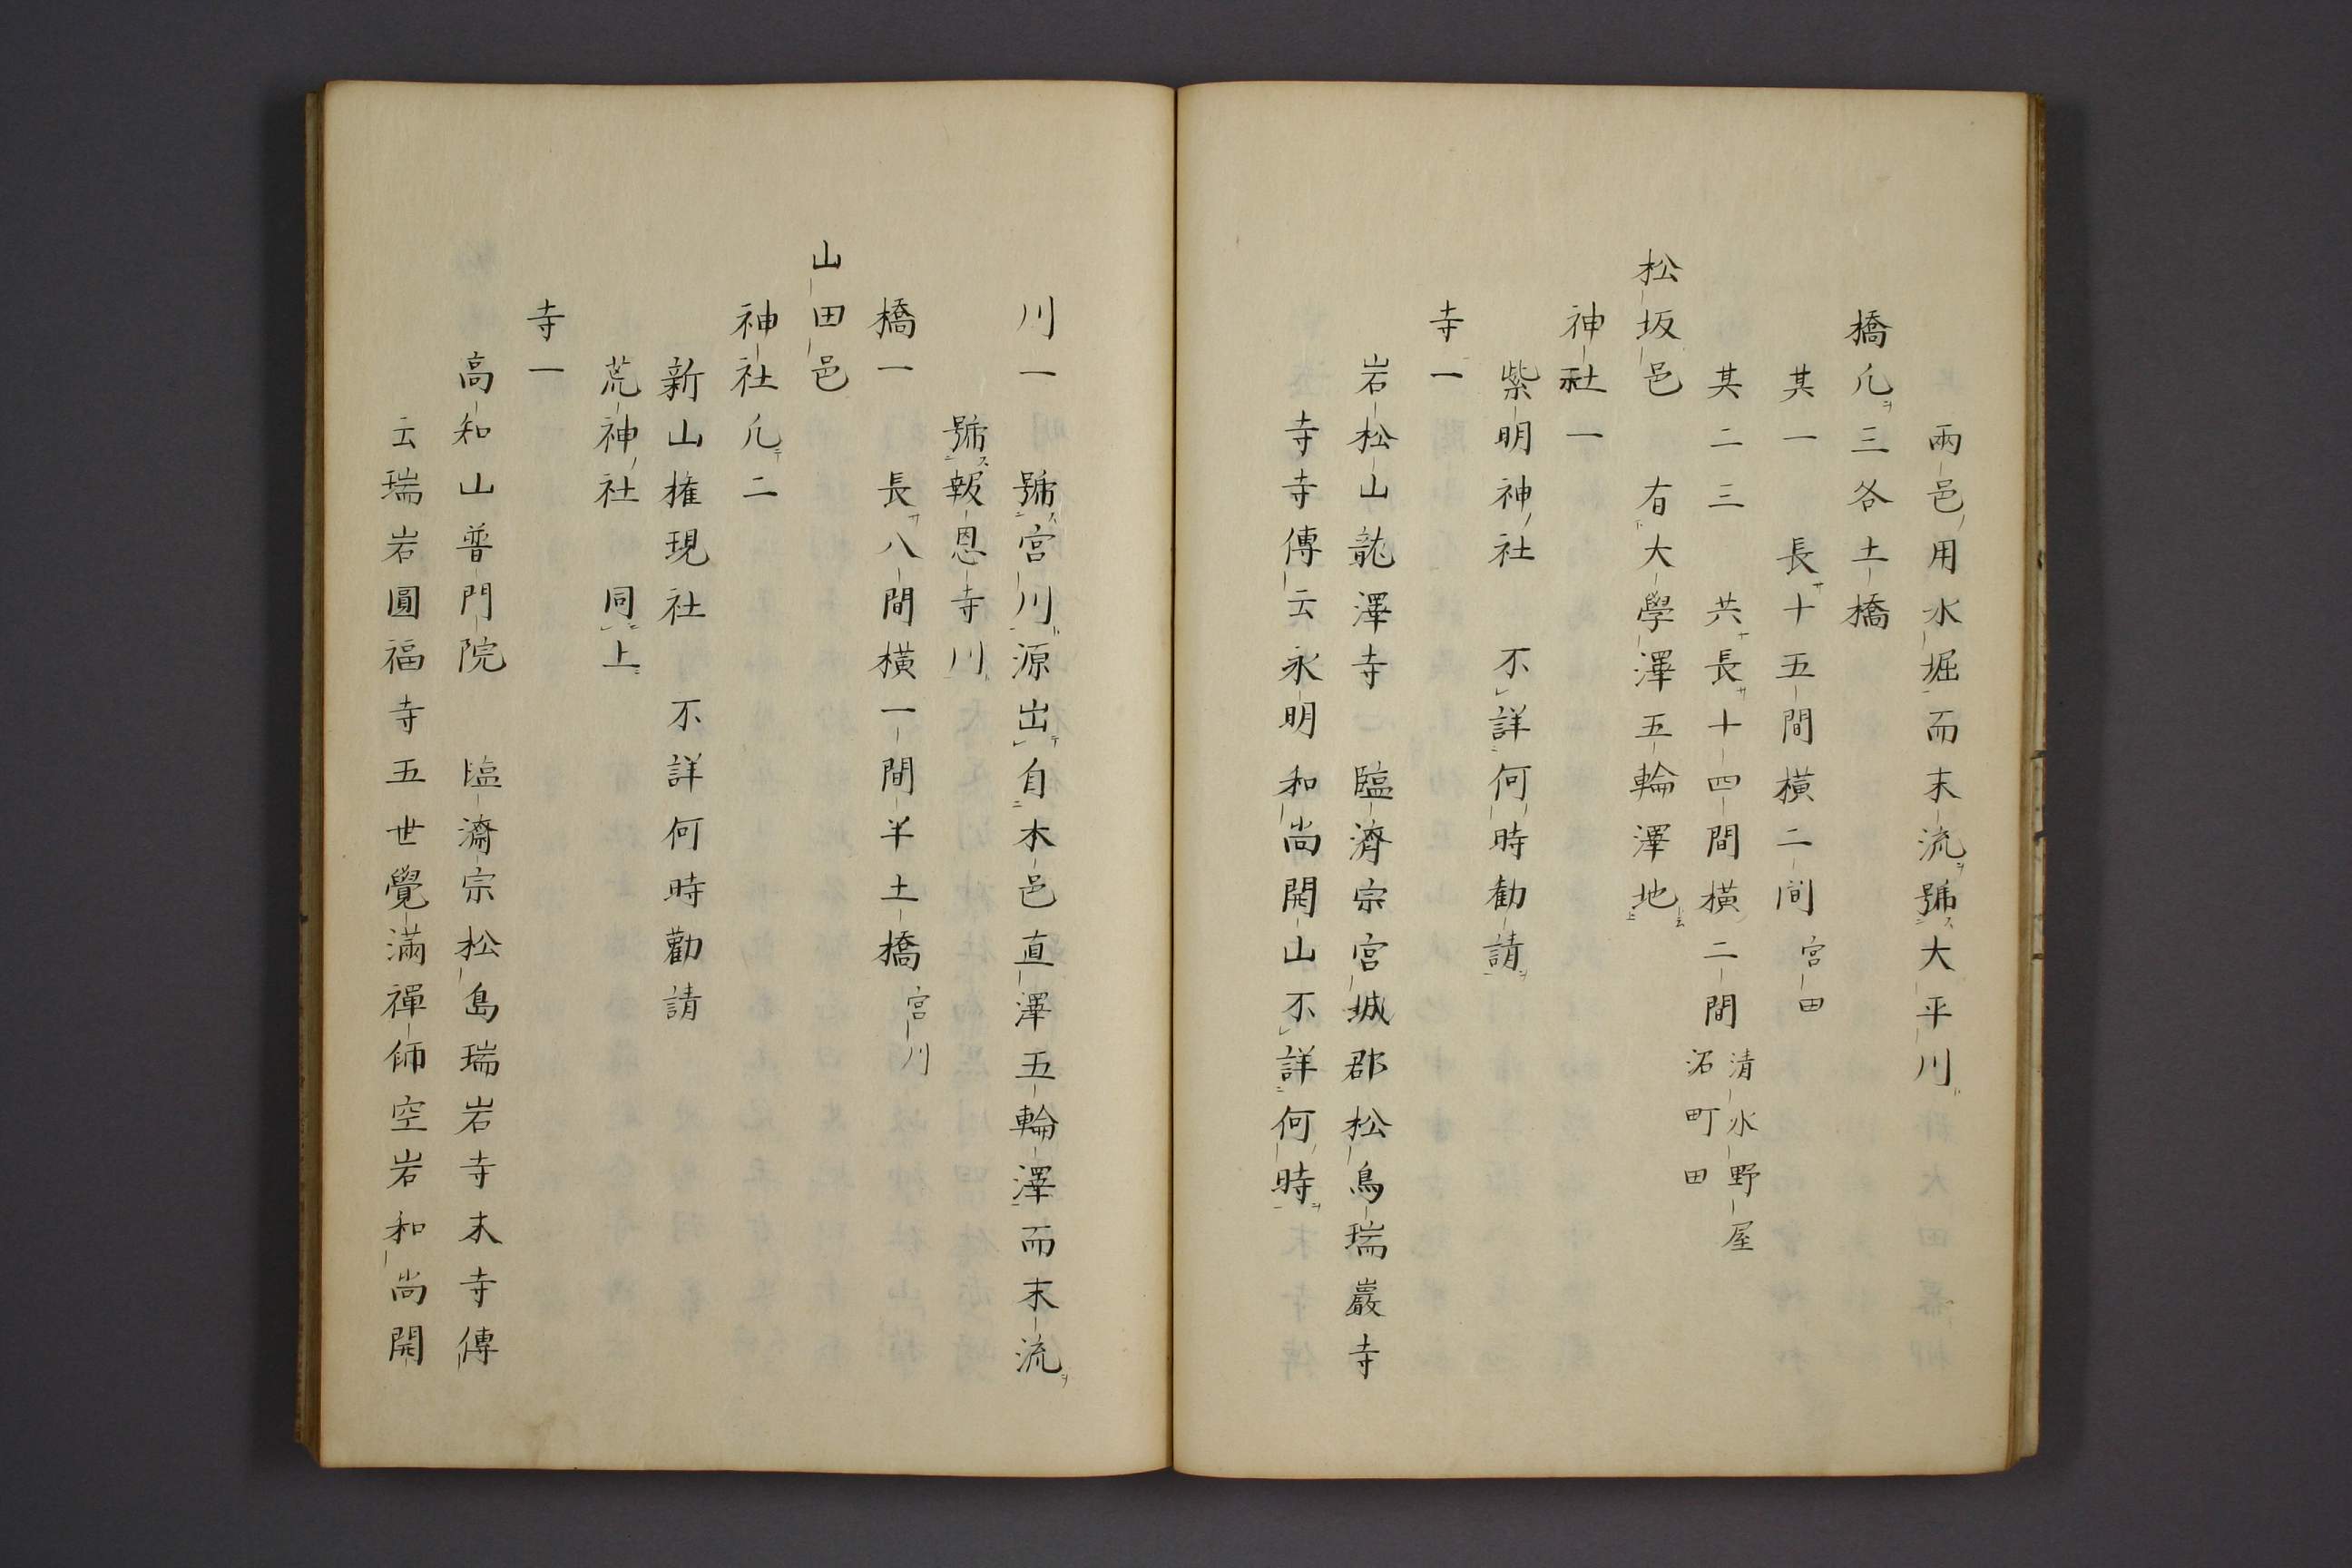 兩邑用水堀而末流號大平川
橋凡三各土橋
其一　長十五間橫二间　宮田
其二三　共長十四間橫二間　清水野屋
沼町田
松坂邑　有大學澤五輪澤地
神社一
紫明神社　不詳何時勸請
寺一
岩松山龍澤寺　臨濟宗宮城郡松島瑞巖寺
寺寺傳云永明和尚開山不詳何時
川一　號宮川源出自木邑直澤五輪澤而末流
號報恩寺川
橋一　長八間橫一間半土橋　宮川
山田邑
神社凡二
新山権現社　不詳何時勸請
荒神社　同上
寺一
高知山普門院　臨濟宗松島瑞岩寺末寺傳
云瑞岩圓福寺五世覺滿禪師空岩和尚開